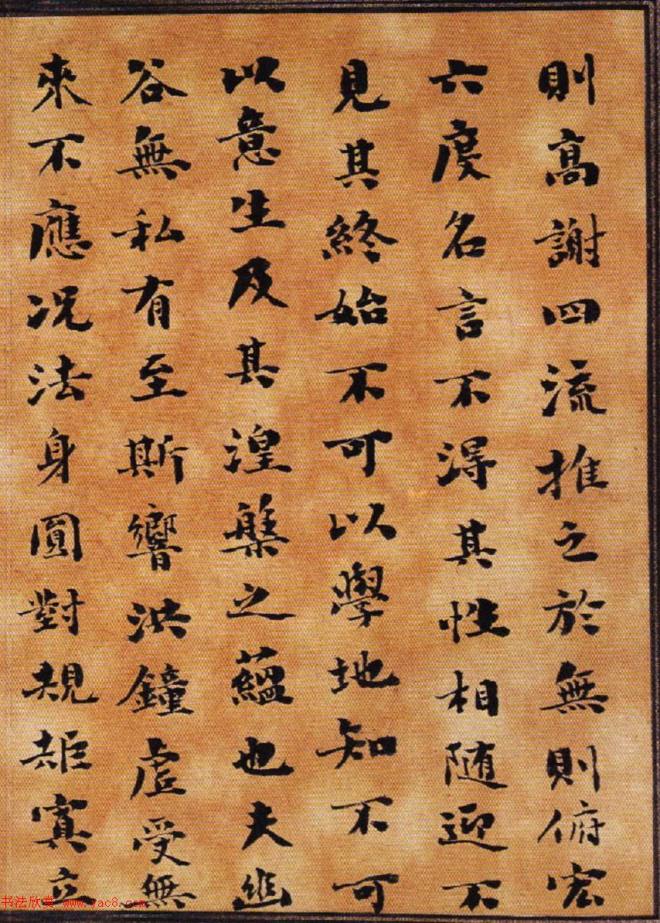 則高謝四流推之於無則俯宏
六度名言不得其性相随迎不
見其終始不可以學地知不可
以意生及其湼槃之蘊也夫幽
谷無私有至斯響洪鐘虛受無
來不應况法身圓對規矩冥立
书法欣赏 www.yac8.com